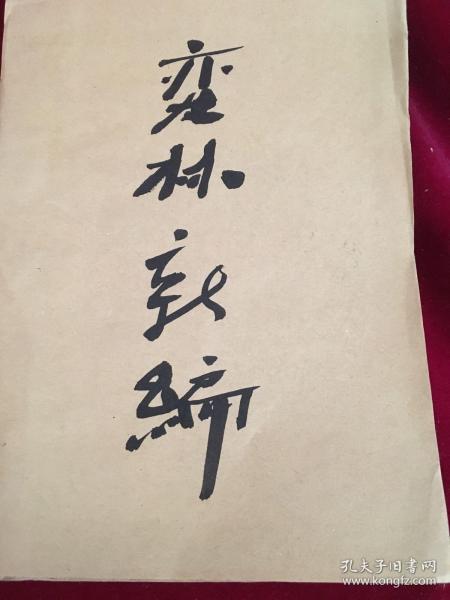 弈林新編
孔夫子旧书网
www.kongfz.com